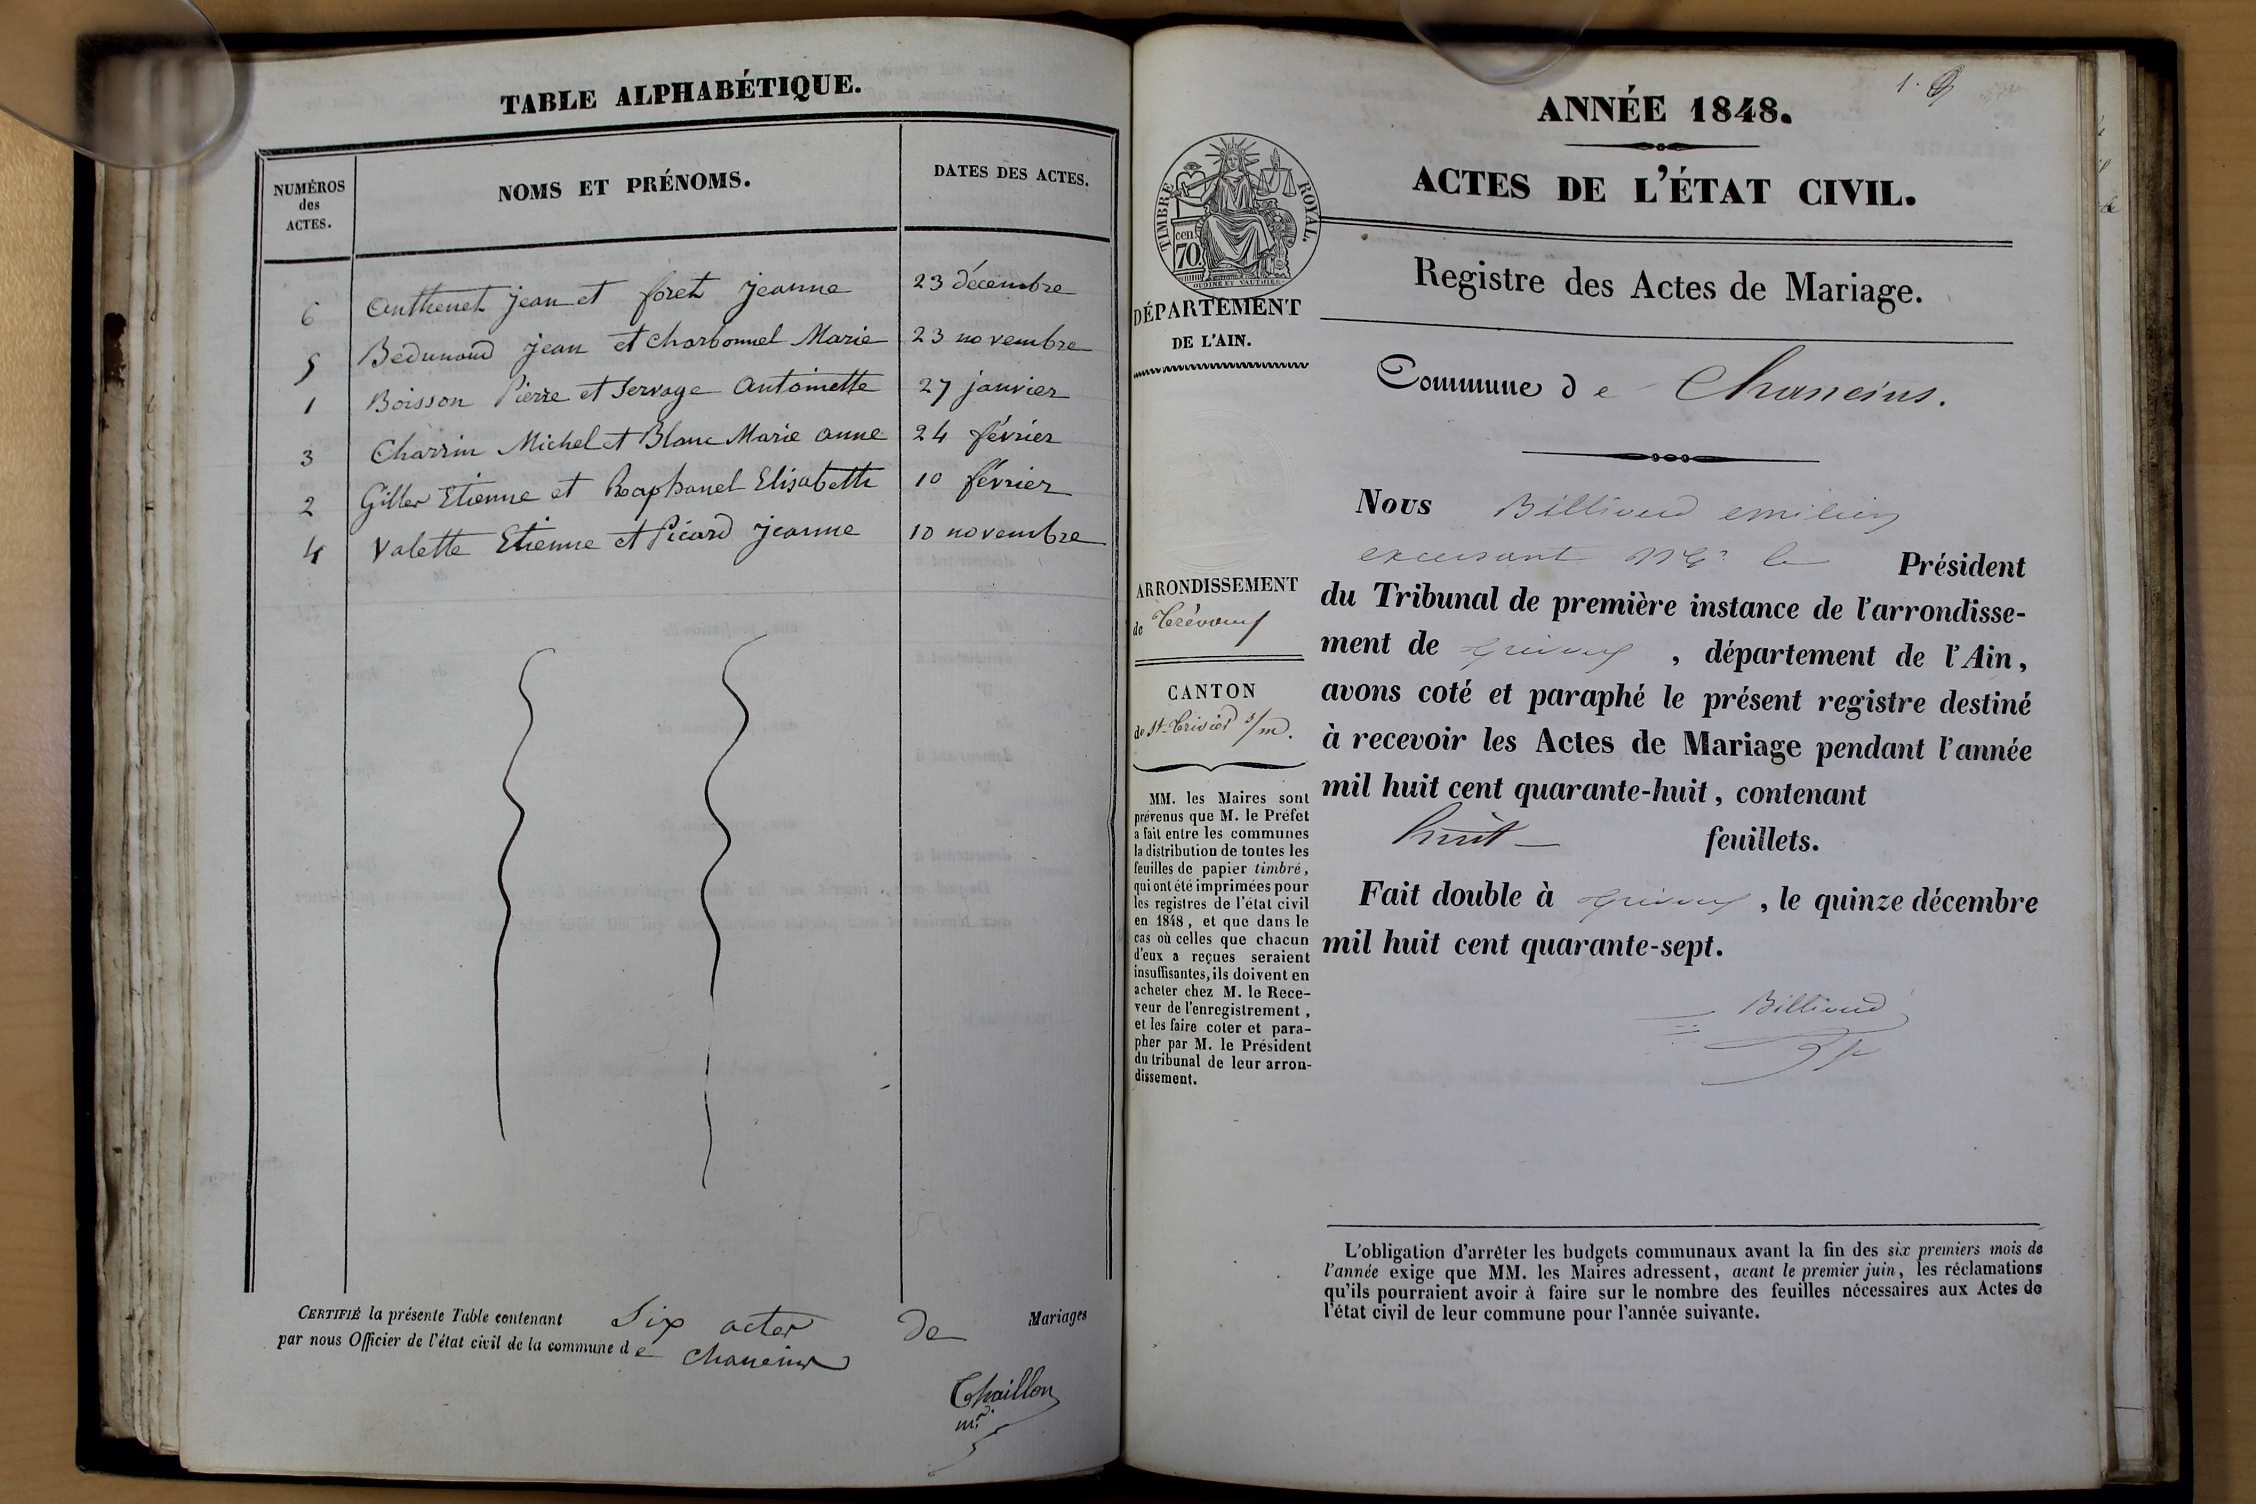 TABLE ALPHABÉTIQUE.
NUMÉROS des ACTES. NOMS ET PRÉNOMS. DATES DES ACTES.
6 Anthenet jean et foret jeanne 23 décembre
5 Bedunaud jean et Charbonnel Marie 23 novembre
1 Boisson Pierre et Servage antoinette 27 janvier
3 Charrin Michel et Blanc Marie anne 24 février
2 Giller Etienne et Raphanel Elisabeth 10 février
4 Valette Etienne et Picard jeanne 10 novembre
CERTIFIÉ la présente Table contenant Six actes de Mariages
par nous Officier de l'état civil de la commune de Chaneins
Chaillon
mre
1.
ANNÉE 1848.
ACTES DE L'ÉTAT CIVIL.
TIMBRE ROYAL.
cen.
70.
OUDINÉ ET VAUTHIER
DÉPARTEMENT
DE L'AIN.
ARRONDISSEMENT
de Trévoux
CANTON
de St-Trivier s/m.
MM. les Maires sont
prévenus que M. le Préfet
a fait entre les communes
la distribution de toutes les
feuilles de papier timbré,
qui ont été imprimées pour
les registres de l'état civil
en 1848, et que dans le
cas où celles que chacun
d'eux a reçues seraient
insuffisantes, ils doivent en
acheter chez M. le Rece-
veur de l'enregistrement,
et les faire coter et para-
pher par M. le Président
du tribunal de leur arron-
dissement.
Registre des Actes de Mariage.
Commune de Chaneins.
Nous Billioud emilien
le Président
du Tribunal de première instance de l'arrondisse-
ment de Trévoux, département de l'Ain,
avons coté et paraphé le présent registre destiné
à recevoir les Actes de Mariage pendant l'année
mil huit cent quarante-huit, contenant
huit feuillets.
Fait double à Trévoux, le quinze décembre
mil huit cent quarante-sept.
Billioud
L'obligation d'arrêter les budgets communaux avant la fin des six premiers mois de
l'année exige que MM. les Maires adressent, avant le premier juin, les réclamations
qu'ils pourraient avoir à faire sur le nombre des feuilles nécessaires aux Actes de
l'état civil de leur commune pour l'année suivante.